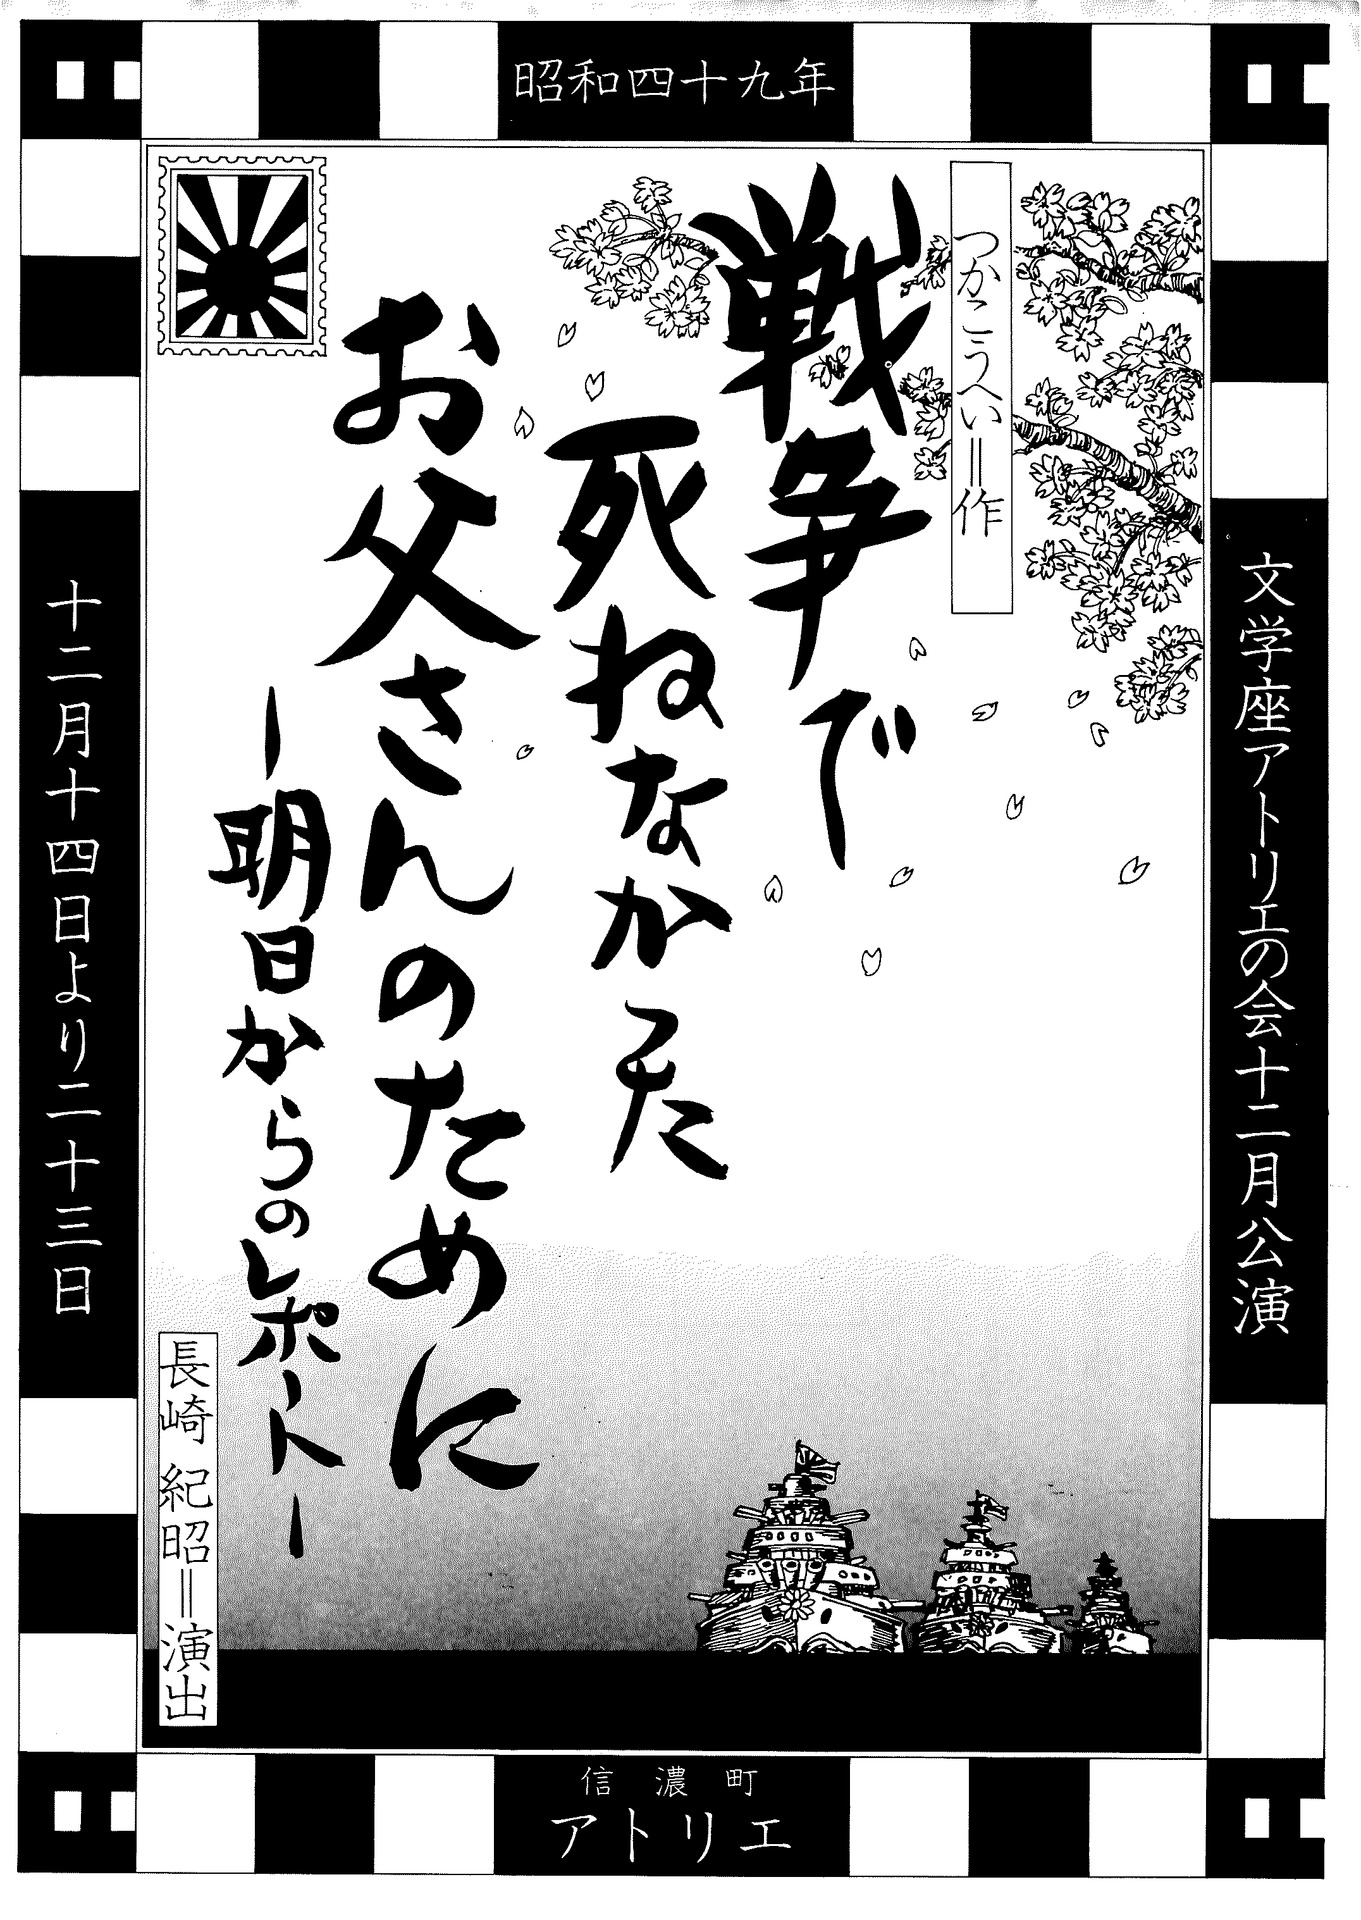 昭和四十九年
文学座アトリエの会十二月公演
つかこうへい＝作
戦争で
死ねなかった
お父さんのために
ー明日からのレポートー
長崎紀昭＝演出
十二月十四日より二十三日
信濃町
アトリエ